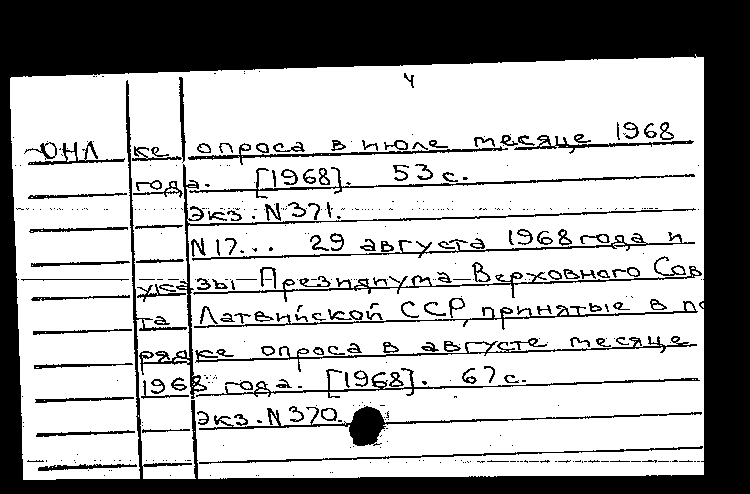 4
ОНЛ ке опроса в июле месяце 1968
года. [1968]. 53 с.
Экз. N 371.
N 17... 29 августа 1968 года и
указы Президиума Верховного Сов
та Латвийской ССР, принятые в по
рядке опроса в августе месяце
1968 года. [1968]. 67 с.
Экз. N 370